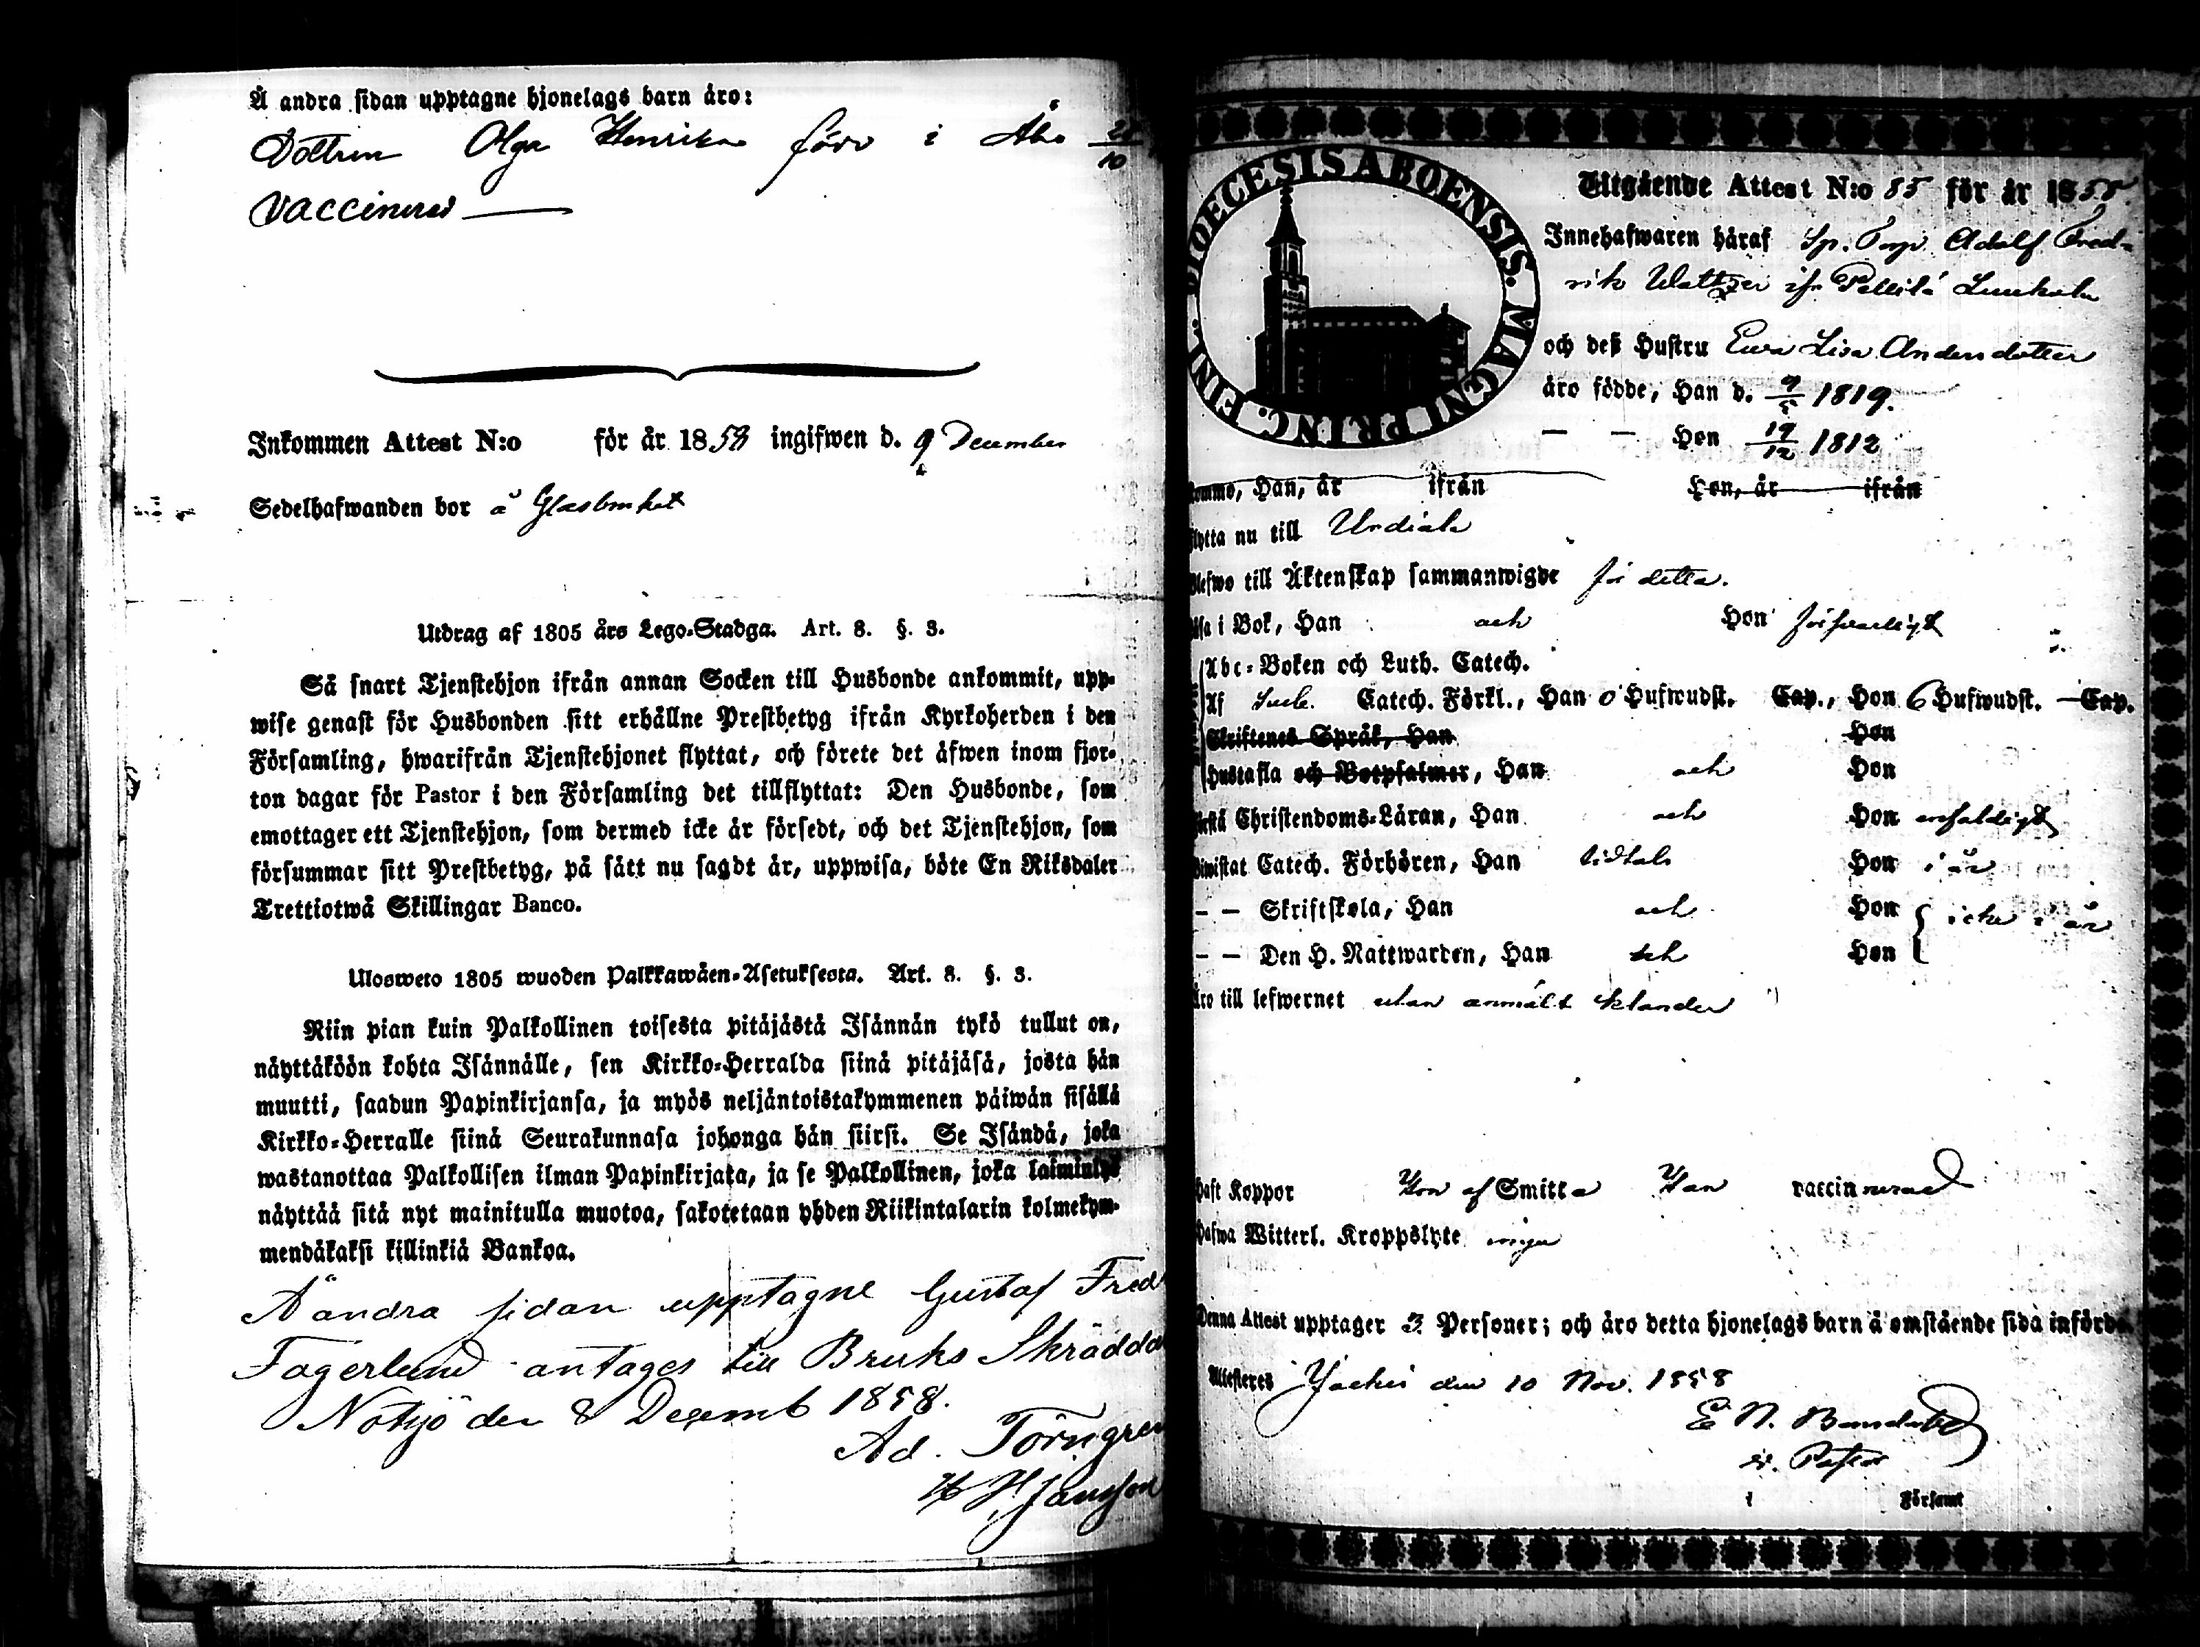 Å andra sidan upptagne hjonelags barn äro:
Dottren Olga Henrika född i Åbo 21/10
vaccinerad
Inkommen Attest N:o för år 1858 ingifwen d. 9 December
Sedelhafwanden bor å Glasbruket
Utdrag af 1805 års Lego-Stadga. Art. 8. §. 3.
Så snart Tjenstehjon ifrån annan Socken till Husbonde ankommit, upp-
wise genast för Husbonden sitt erhållne Prestbetyg ifrån Kyrkoherden i den
Församling, hwarifrån Tjenstehjonet flyttat, och förete det äfwen inom fjor-
ton dagar för Pastor i den Församling det tillflyttat: Den Husbonde, som
emottager ett Tjenstehjon, som dermed icke är försedt, och det Tjenstehjon, som
försummar sitt Prestbetyg, på sätt nu sagdt är, uppwisa, böte En Riksdaler
Trettiotwå Skillingar Banco.
Ulosweto 1805 wuoden Palkkawäen-Asetuksesta. Art. 8. §. 3.
Niin pian kuin Palkollinen toisesta pitäjästä Isännän tykö tullut on,
näyttäköön kohta Isännälle, sen Kirkko-Herralda siinä pitäjäsä, josta hän
muutti, saadun Papinkirjansa, ja myös neljäntoistakymmenen päiwän sisällä
Kirkko-Herralle siinä Seurakunnasa johonga hän siirsi. Se Isändä, joka
wastanottaa Palkollisen ilman Papinkirjata, ja se Palkollinen, joka laiminlyö
näyttää sitä nyt mainitulla muotoa, sakotetaan yhden Riikintalarin kolmekym-
mendäkaksi killinkiä Bankoa.
Å andra sidan upptagne Gustaf Fred
Fagerlund antages till Bruks Skrädda
Notsjö den 8 Decemb 1858.
Ad. Törngren
H Jansson
DIOECESIS ABOENSIS. MAGNI PRINC. FINL.
Utgående Attest N:o 85 för år 1858.
Innehafwaren häraf Sp. Torp. Adolf Fred-
rik ifr
och deß Hustru Ewa Lisa Andersdotter
äro födde, Han d. 9/5 1819.
— — Hon 19/12 1812
kommo, Han, år ifrån Hon, år ifrån
flytta nu till Urdiala
Blefwo till Äktenskap sammanwigde för detta.
Läsa i Bok, Han och Hon försvarligt
Abc-Boken och Luth. Catech.
Af Catech. Förkl., Han 6 Hufwudst. Cap., Hon 6 Hufwudst. — Cap.
Skriftenes Språk, Han Hon
Hustafla och Botpsalmer, Han och Hon
Förstå Christendoms-Läran, Han och Hon enfaldigt
Biwistat Catech. Förhören, Han Hon i år
— — Skriftskola, Han och Hon icke i år
— — Den H. Nattwarden, Han och Hon
Äro till lefwernet utan anmält klander
Haft Koppor Hon af Smitta Han vaccinnerad
Hafwa Witterl. Kroppslyte inga
Denna Attest upptager 3 Personer; och äro detta hjonelags barn å omstående sida införde
Attesteras Jockis den 10 Nov. 1858
E N.
v. Pastor
i Församl